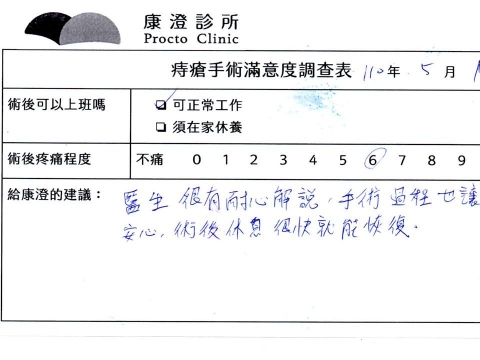 康澄診所
Procto Clinic
痔瘡手術滿意度調查表 110年 5月
術後可以上班嗎
☑ 可正常工作
☐ 須在家休養
術後疼痛程度 不痛 0 1 2 3 4 5 6 7 8 9
給康澄的建議：
醫生很有耐心解說，手術過程也讓
安心，術後休息很快就能恢復。